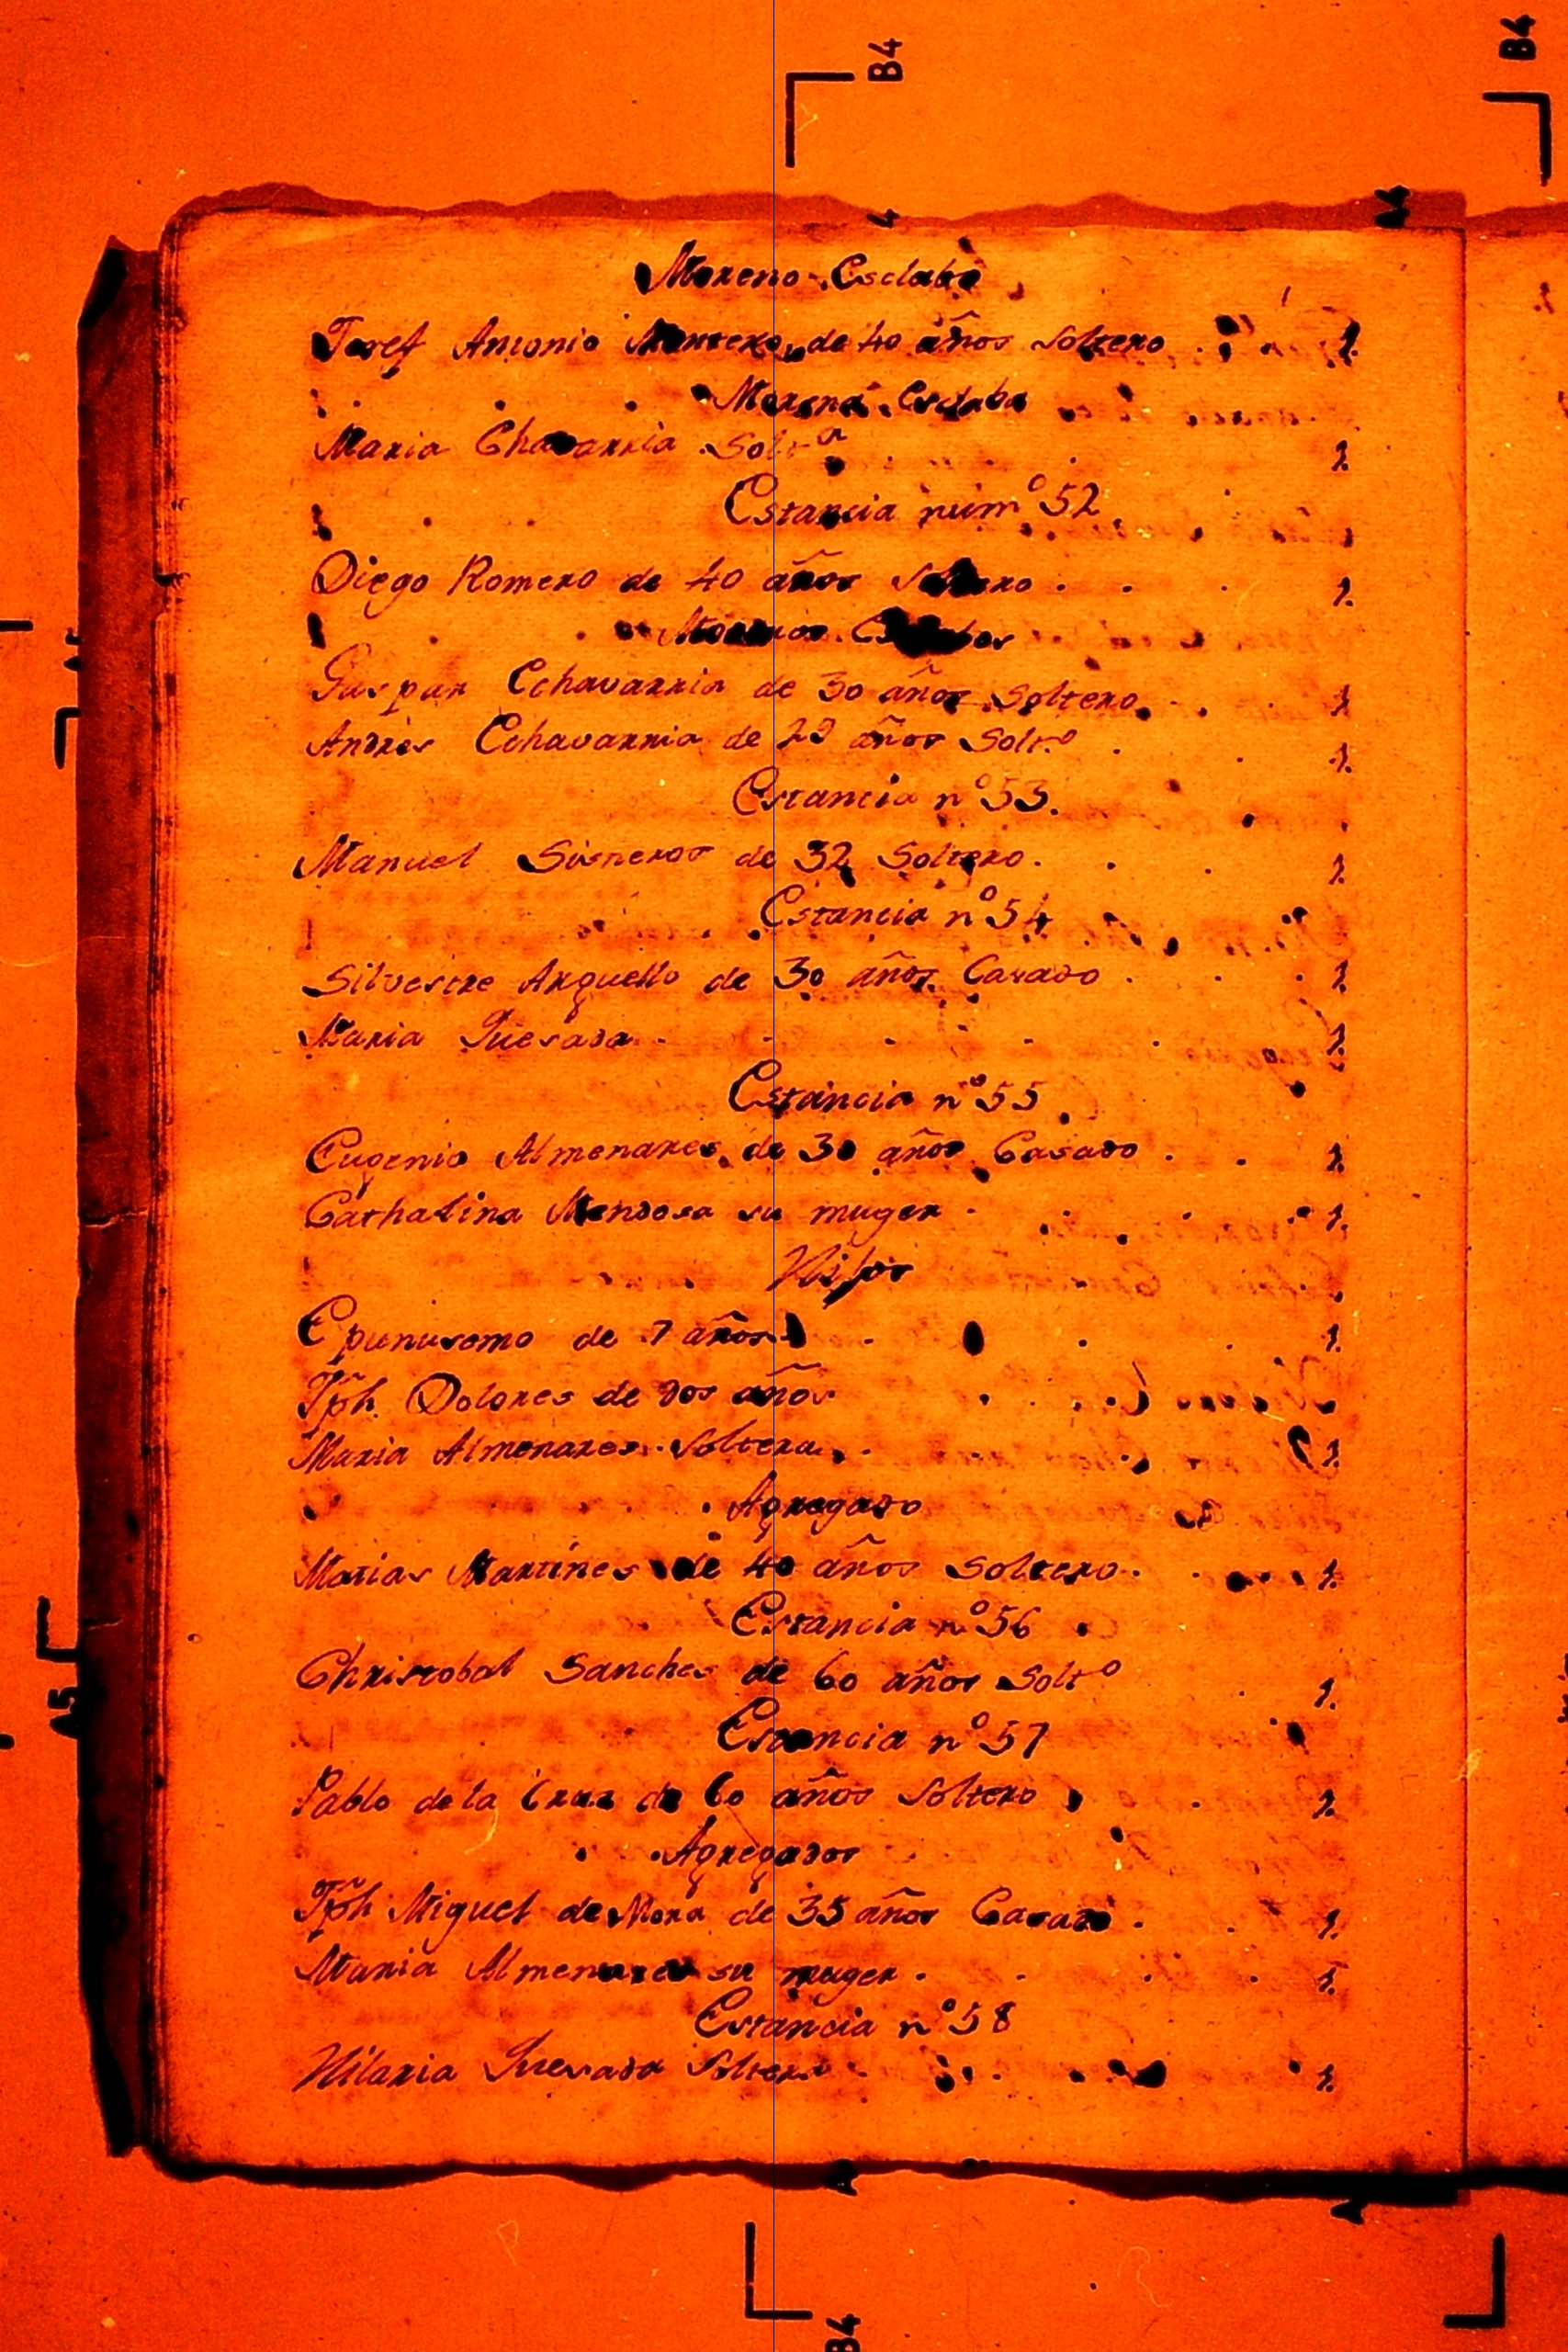 B4
B4
4
Moreno Esclabo
Josef Antonio Montero, de 40 años soltero . . 1.
Morena Esclaba
Maria Chavarria Solt.ª 1.
Estancia num.º 52
Diego Romero de 40 años Soltero . . . 1.
Morenos Esclabos
Gaspar Echavarria de 30 años soltero . . 1
Andrés Echavarria de 29 años Solt.º . . 1.
Estancia nº 53.
Manuel Sisneros de 32 Soltero . . . 1
Estancia nº 54
Silvestre Arguello de 30 años Casado . . . 1
Maria Quesada . . . . . 1
Estancia nº 55
Eugenio Almenares de 30 años Casado . . 1
Cathalina Mendosa su muger . . . . 1.
Hijos
de 7 años . . . 1.
Jph Dolores de dos años
Maria Almenares soltera . . . 1
Agregado
Matias Martines de 40 años soltero . . . 1.
Estancia nº 56
Christobal Sanches de 60 años Solt.º . 1.
Estancia nº 57
Pablo de la Cruz de 60 años Soltero . . 1.
Agregados
Jph Miguel de Mora de 35 años Casado . . 1.
Maria Almenares su muger . . . . 1.
Estancia nº 58
Hilaria Quesada Soltera . . . . 1.
A5
B4